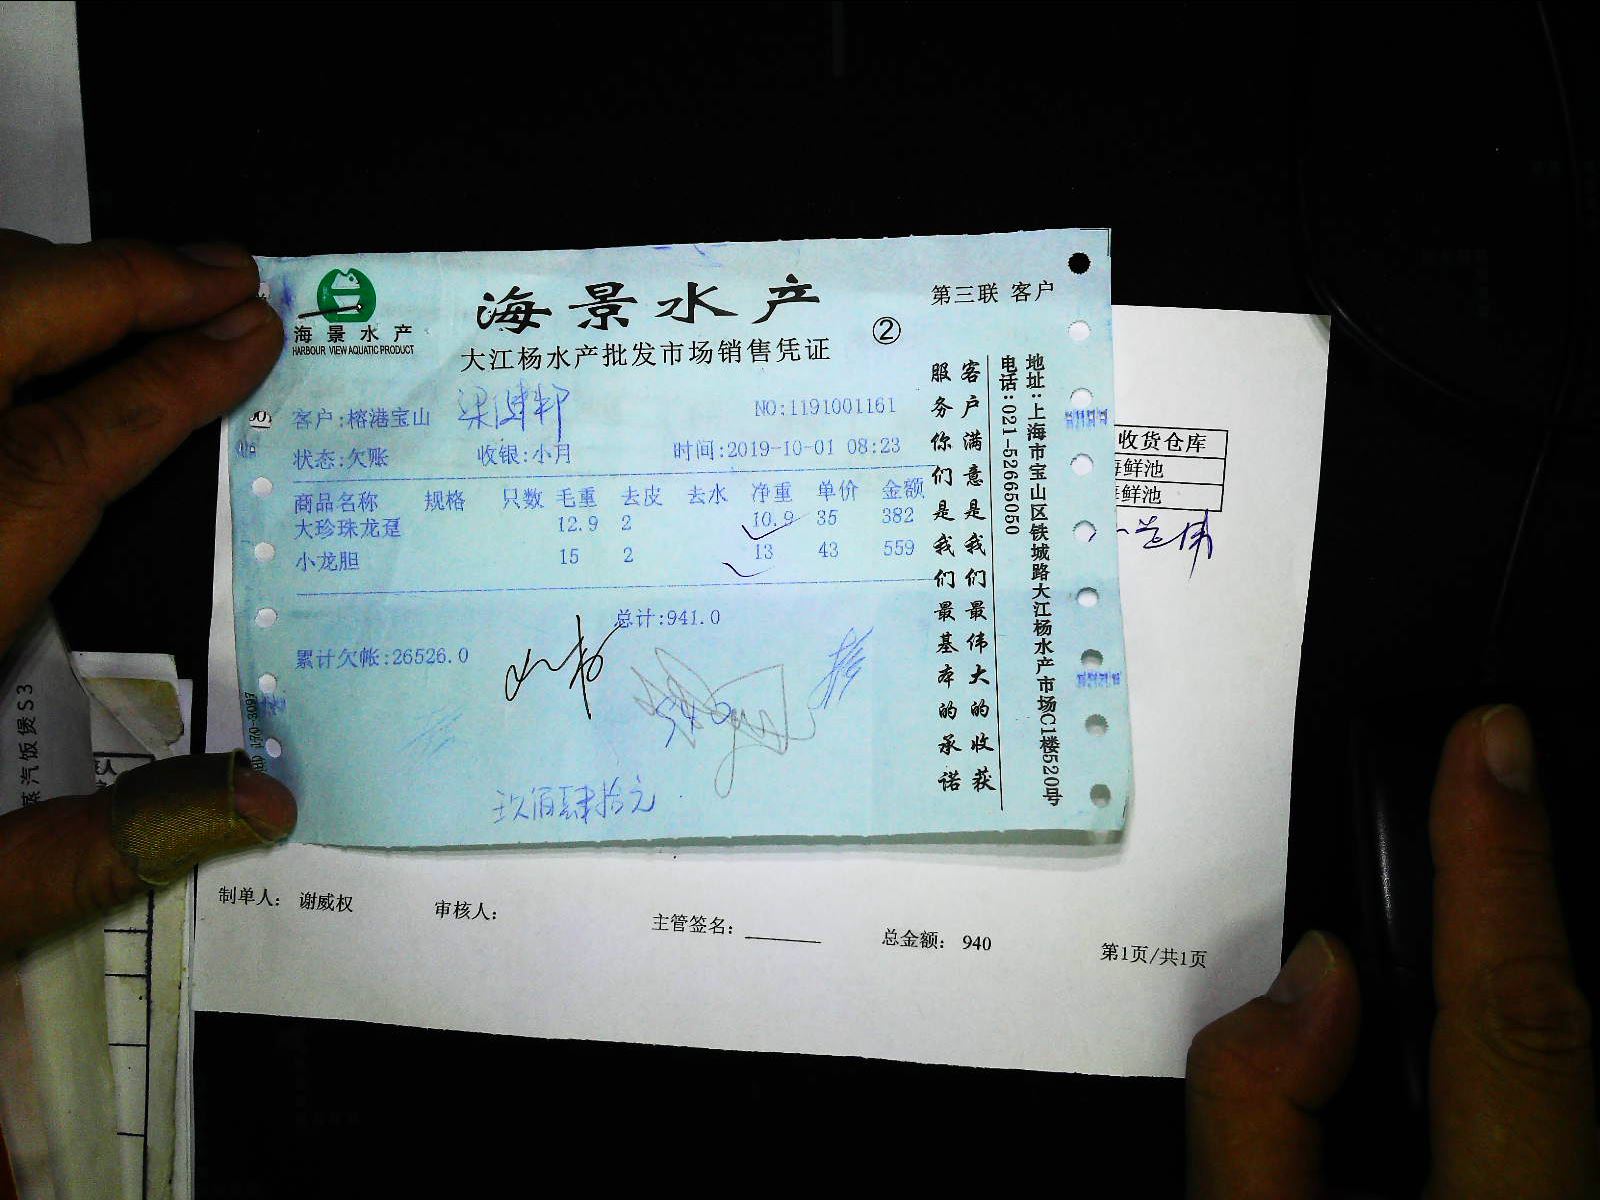 海景水产
HARBOUR VIEW AQUATIC PRODUCT
海景水产
大江杨水产批发市场销售凭证
②
第三联 客户
客户:榕港宝山
NO:1191001161
状态:欠账 收银:小月 时间:2019-10-01 08:23
商品名称 规格 只数 毛重 去皮 去水 净重 单价 金额
大珍珠龙趸 12.9 2 10.9 35 382
小龙胆 15 2 13 43 559
总计:941.0
累计欠帐:26526.0
玖佰肆拾元
客户满意是我们最伟大的收获
服务你们是我们最基本的承诺
地址:上海市宝山区铁城路大江杨水产市场C1楼520号
电话:021-52665050
收货仓库
海鲜池
海鲜池
制单人: 谢威权 审核人: 主管签名: 总金额: 940 第1页/共1页
蒸汽饭煲S3